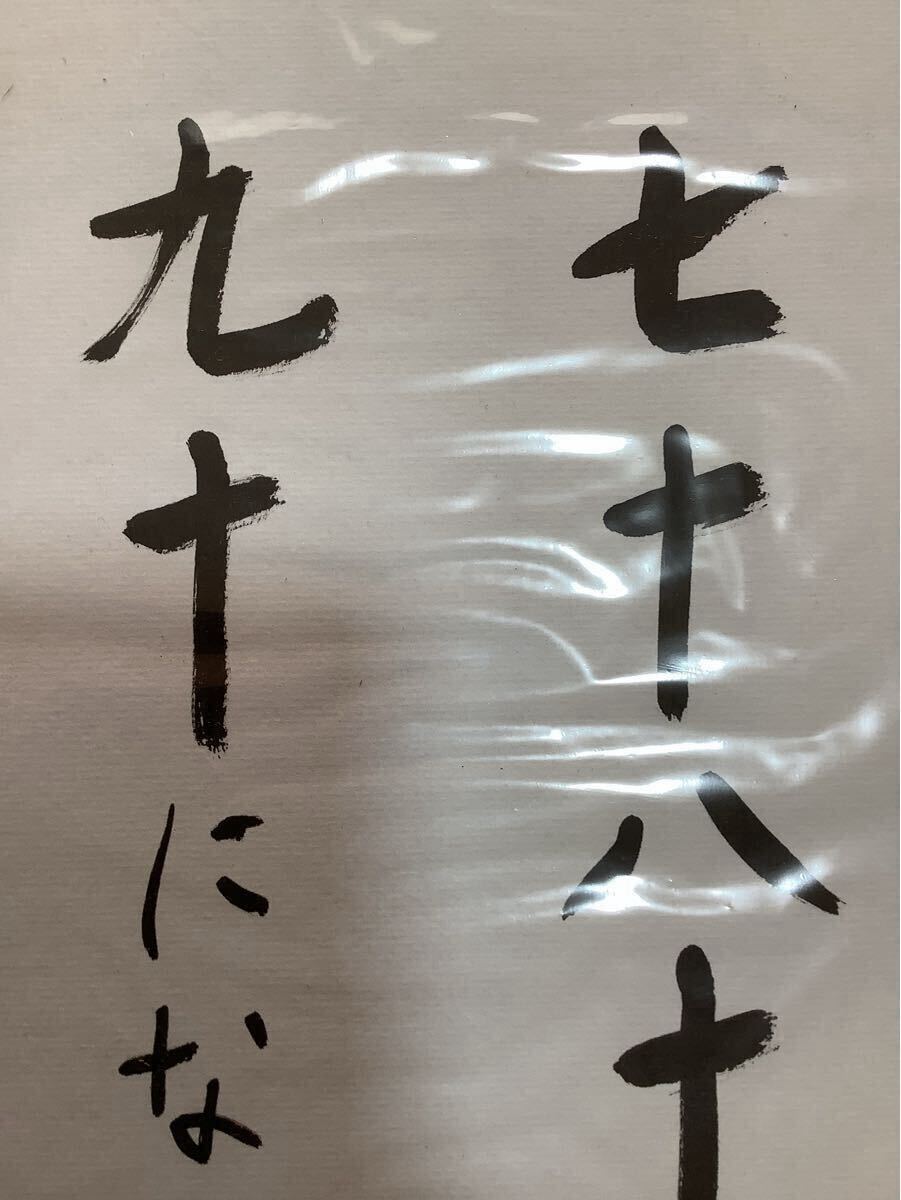 七十八十
九十にな